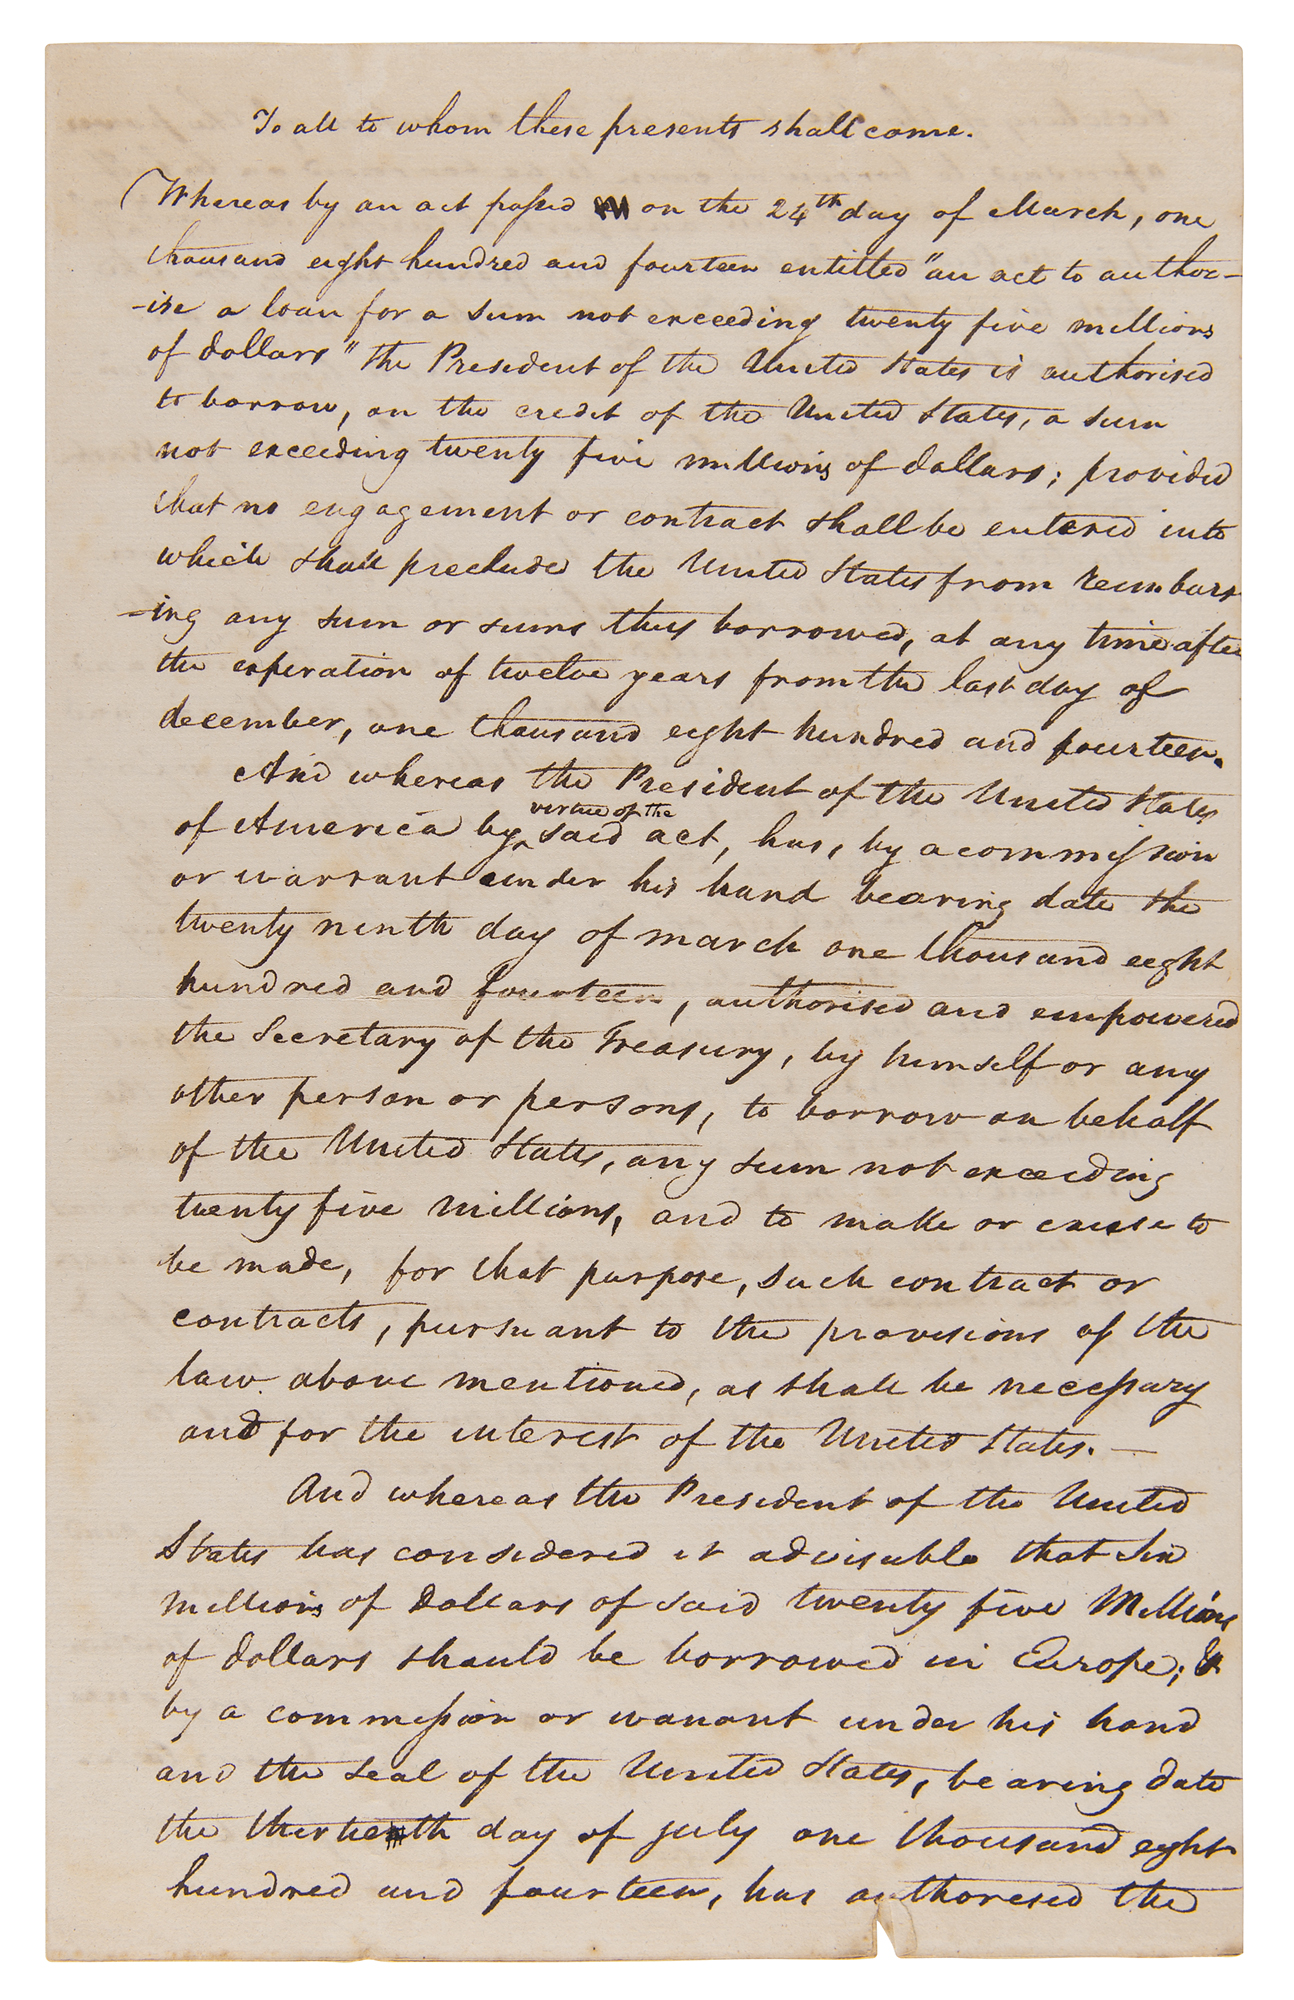 To all to whom these presents shall come.
Whereas by an act passed on the 24th day of March, one
thousand eight hundred and fourteen entitled "an act to author-
-ise a loan for a sum not exceeding twenty five millions
of dollars" the President of the United States is authorised
to borrow, on the credit of the United States, a sum
not exceeding twenty five millions of dollars; provided
that no engagement or contract shall be entered into
which shall preclude the United States from reimburs
-ing any sum or sums thus borrowed, at any time after
the expiration of twelve years from the last day of
december, one thousand eight hundred and fourteen.
And whereas the President of the United States
virtue of the
of America by ‸ said act, has, by a commission
or warrant under his hand bearing date the
twenty ninth day of march one thousand eight
hundred and fourteen, authorised and empowered
the Secretary of the Treasury, by himself or any
other person or persons, to borrow on behalf
of the United States, any sum not exceeding
twenty five millions, and to make or cause to
be made, for that purpose, such contract or
contracts, pursuant to the provisions of the
law above mentioned, as shall be necessary
and for the interest of the United States. —
And whereas the President of the United
States has considered it advisable that Six
millions of dollars of said twenty five Millions
of dollars should be borrowed in Europe; &
by a commission or warrant under his hand
and the seal of the United States, bearing date
the thirteenth day of july one thousand eight
hundred and fourteen, has authorised the